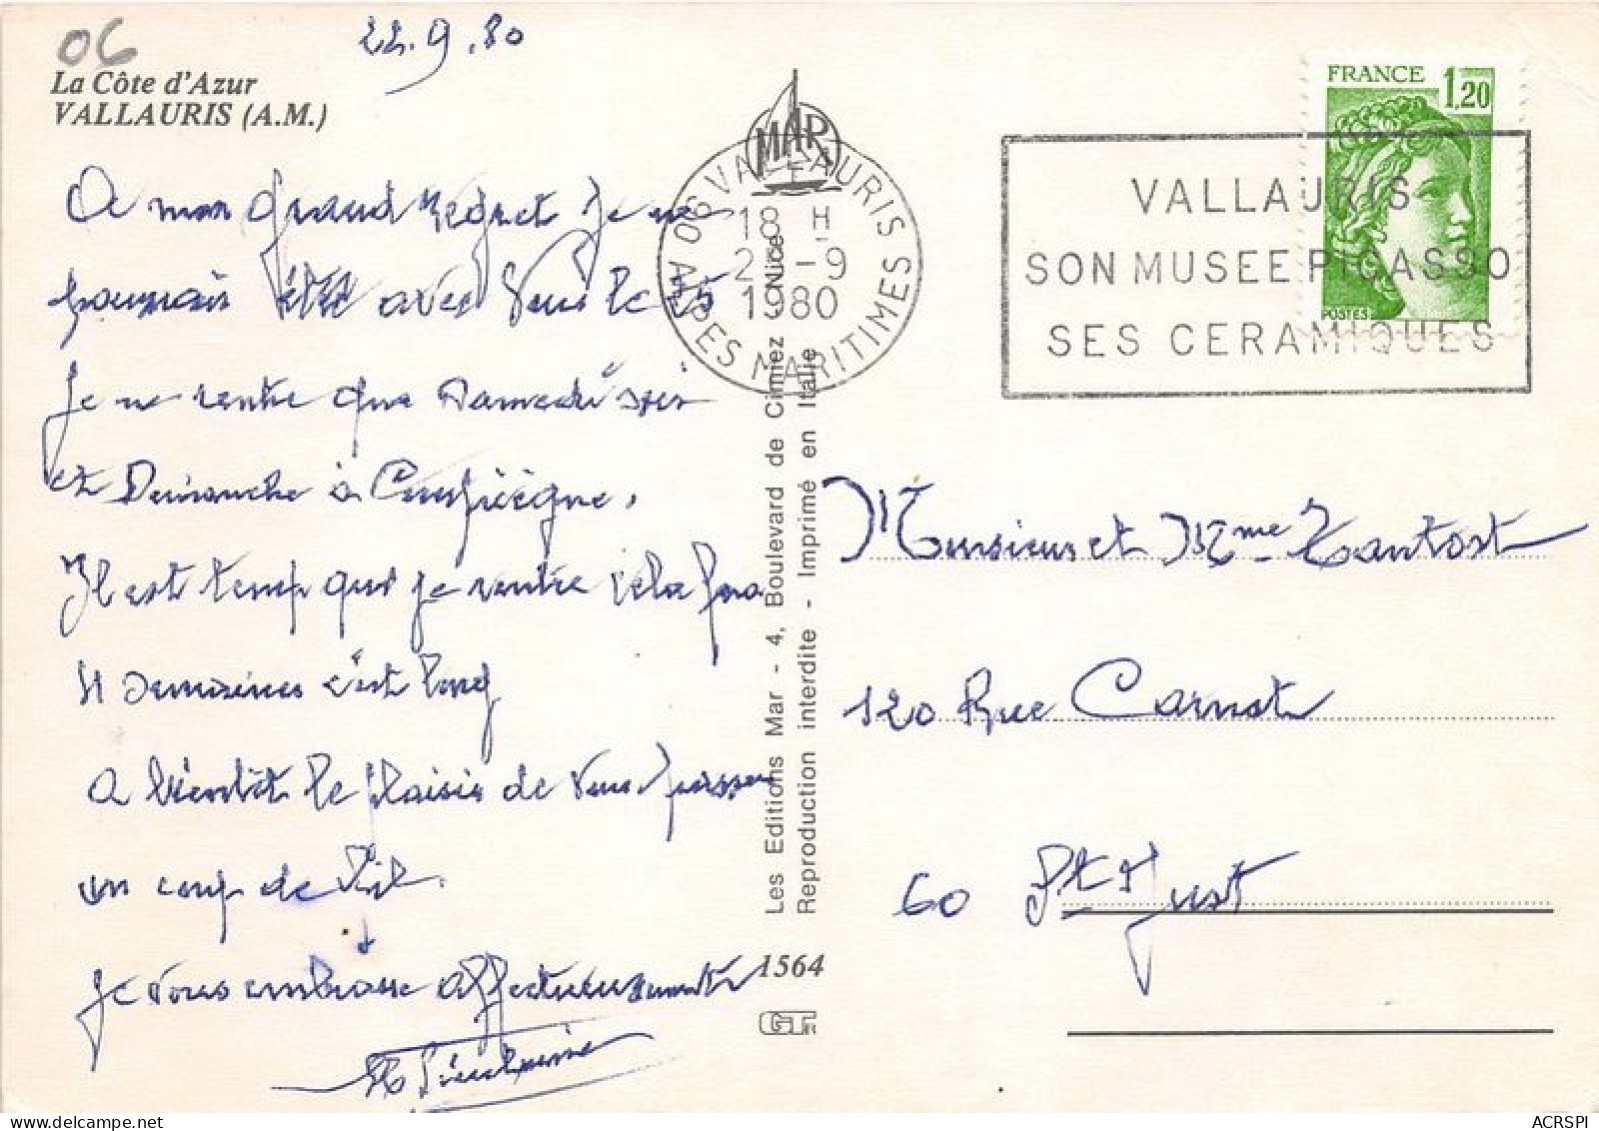 06
22.9.80
La Côte d'Azur
VALLAURIS (A.M.)
A mon grand regret je ne
pourrais être avec Vous le 25
Je ne rentre que Samedi soir
et Dimanche à Compiègne,
Il est temps que je rentre cela fera
4 semaines c'est long
A bientôt le plaisir de Vous passer
un coup de Fil.
Je vous embrasse affectueusement
MAR
06 VALLAURIS
18 H
-9
1980
ALPES MARITIMES
Les Editions Mar - 4, Boulevard de Cimiez - Nice
Reproduction interdite - Imprimé en Italie
1564
FRANCE 1,20
POSTES
VALLAURIS
SON MUSEE PICASSO
SES CERAMIQUES
Monsieur et Mme Tantost
120 Rue Carnot
60 St Just
ACRSPI